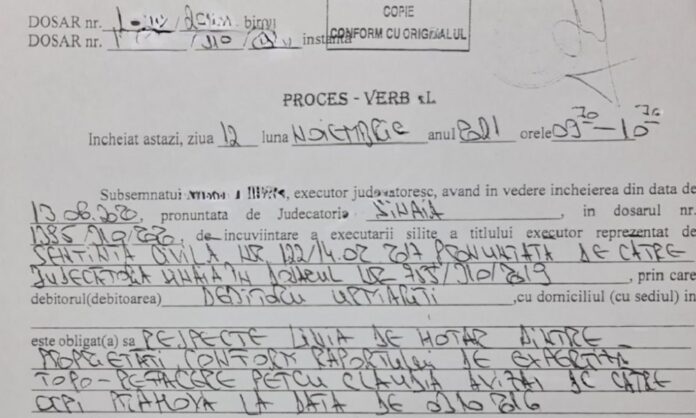 DOSAR nr. birou
DOSAR nr. /310/ instanta
COPIE
CONFORM CU ORIGINALUL
PROCES - VERBAL
Incheiat astazi, ziua 12 luna NOIEMBRIE anul 2021 orele 09 30 - 10 30
Subsemnatul executor judecatoresc, avand in vedere incheierea din data de
13.06.2020, pronuntata de Judecatoria SINAIA, in dosarul nr.
1395/310/2020, de incuviintare a executarii silite a titlului executor reprezentat de
SENTINTA CIVILA NR. 122/14.02.2017 PRONUNTATA DE CATRE
JUDECATORIA SINAIA IN DOSARUL NR /310/2013, prin care
debitorul(debitoarea) DEBITORII URMARITI, cu domiciliul (cu sediul) in
este obligat(a) sa RESPECTE LINIA DE HOTAR DINTRE
PROPRIETATI CONFORM RAPORTULUI DE EXPERTIZA
TOPO-REFACERE PETCU CLAUDIA AVIZAT DE CATRE
OCPI PRAHOVA LA DATA DE 02.10.2016